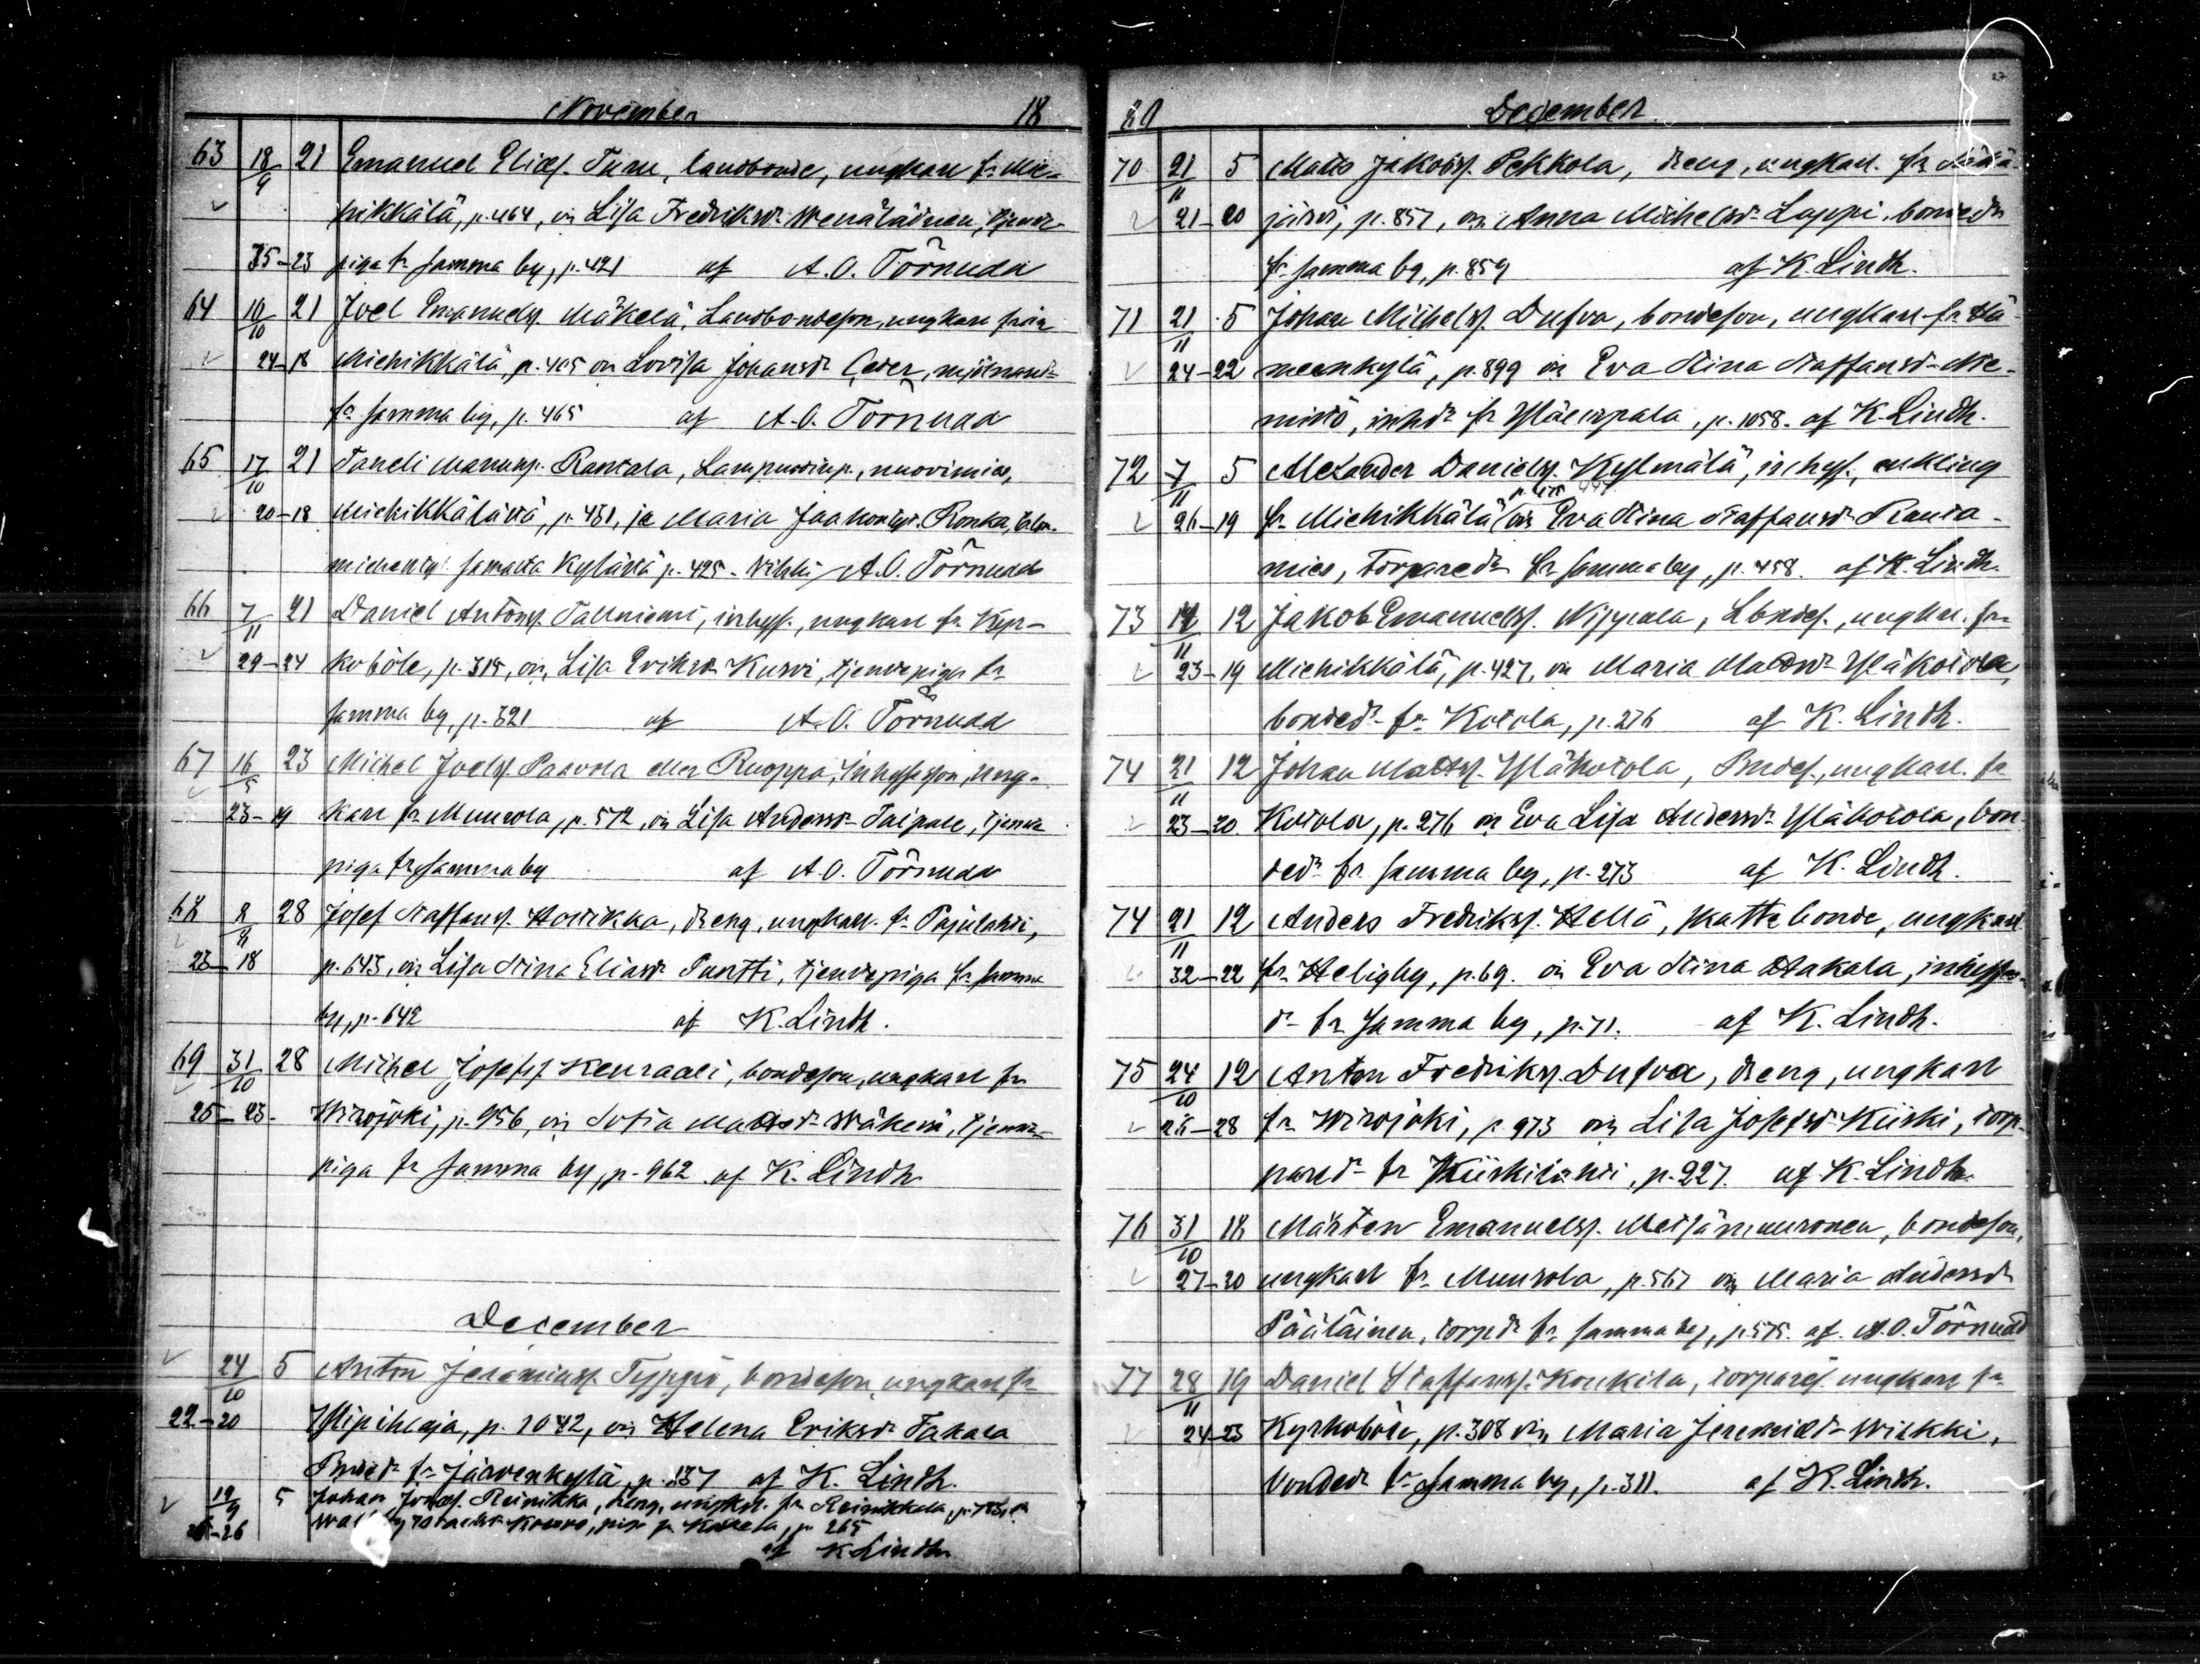 November 18
63 18/9 21 Emanuel Eliass. Turu, landbonde, ungkarl fr. Mie-
hikkälä, p. 464, o. Lisa Fredriksdr Wenäläinen, tjenste-
35-23 piga fr. samma by, p. 421 af A. O. Törnudd
64 10/10 21 Joel Emanuelss. Mäkelä, Landbondeson, ungkarl från
24-18 Miehikkälä, p. 405 o. Lovisa Johansdr Ceder, mjölnaredr
fr. samma by, p. 465 af A. O. Törnudd
65 17/10 21 Taneli Manup. Rantala, nuorimies,
20-18 Miehikkälästä, p. 451, ja Maria Jaakontyt. Ronka, talon-
miehentyt. samasta kylästä p. 425. Vihki A. O. Törnudd
66 7/11 21 Daniel Antons. Tallniemi, inhyss., ungkarl fr. Kyr-
29-24 koböle, p. 315, o. Lisa Eriksdr Kurvi, tjenstepiga fr.
samma by, p. 321 af A. O. Törnudd
67 16/5 23 Michel Joelss. Paavola eller Ruoppa, inhysesson, ung-
23-19 karl fr. Muurola, p. 572, o. Lisa Andersdr Taipale, tjenste-
piga fr. samma by af A. O. Törnudd
68 28 Josef Staffanss. Hovikka, dreng, ungkarl fr. Pajulahti,
23-18 p. 643, o. Lisa Stina Eliasdr Pantti, tjenstepiga fr. samma
by, p. 642 af K. Lindh.
69 31/10 28 Michel Josefss. Kenraali, bondeson, ungkarl fr.
25-23 Wirojoki, p. 956, o. Sofia Matsdr Mäkelä, tjenste-
piga fr. samma by, p. 962 af K. Lindh
December
24/10 5 Anton Jeremiass. Typpö, bondeson, ungkarl fr.
22-20 Ylipihlaja, p. 1042, o. Helena Eriksdr Takala
Bondedr fr. Järvenkylä, p. 137 af K. Lindh.
19/9 5 Johan Josefs. Reinikka, dreng, ungkarl fr. Reinikkala, p. 783, o.
26 p. 265
af K Lindh
80 December
70 21/11 5 Matts Jakobss. Pekkola, dreng, ungkarl fr.
21-20 järvi, p. 857, o. Anna Michelsdr Lappi, bondedr
fr. samma by, p. 859 af K. Lindh.
71 21/11 5 Johan Michelss. Dufva, bondeson, ungkarl fr. Hä-
24-22 meenkylä, p. 899 o. Eva Stina Staffansdr Nie-
mistö, inhdr fr. Yläurpala, p. 1058. af K. Lindh.
72 7/11 5 Alexander Daniels. Kylmälä, inhys., enkling
26-19 fr. Miehikkälä o. Eva Stina Staffansdr Ranta-
mies, torparedr fr. samma by, p. 458. af K. Lindh.
73 14/11 12 Jakob Emanuelss. Nippala, Lbndes., ungkarl fr.
23-19 Miehikkälä, p. 427, o. Maria Matsdr Yläkotola,
bondedr fr. Kotola, p. 276 af K. Lindh.
74 21/11 12 Johan Matss. Yläkotola, Bndes., ungkarl fr.
23-20 Kotola, p. 276 o. Eva Lisa Andersdr Yläkotola, bon-
dedr fr. samma by, p. 273 af K. Lindh.
74 21/11 12 Anders Fredrikss. Hellä, skattebonde, ungkarl
32-22 fr. Heligby, p. 69. o. Eva Stina Hakala, inhyses-
dr fr. samma by, p. 71. af K. Lindh.
75 24/10 12 Anton Fredrikss. Dufva, dreng, ungkarl
28 fr. Wirojoki, p. 973 o. Lisa Josefsdr Kiiski, torp-
paredr fr. Kiiskilahti, p. 227. af K. Lindh
76 31/10 18 Mårten Emanuelss. Metsämuuronen, bondeson,
27-20 ungkarl fr. Muurola, p. 567 o. Maria Andersdr
Pääläinen, torpdr fr. samma by, p. 575. af A. O. Törnudd
77 28/11 19 Daniel Staffanss. Koukila, torpares. ungkarl fr.
24-23 Kyrkoböle, p. 308 o. Maria Jeremiasdr Wirkki,
bondedr fr. samma by, p. 311. af K. Lindh.